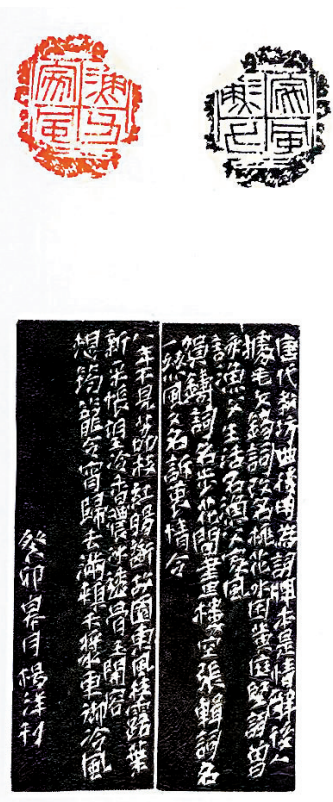 漁父家風
唐代教坊曲後用為詞牌本是情解後人
據毛文錫詞改名桃花水因黄庭堅詞曾
詠漁父生活名漁父家風
賀鑄詞名步花間畫樓空張輯詞名
一絲風又名訴衷情令
八年不見荔枝紅腸斷故園東風枝露葉
新采悵望冷香濃冰透骨玉開容
想筠籠今宵歸去滿頰天漿更御泠風
癸卯皋月楊洋利